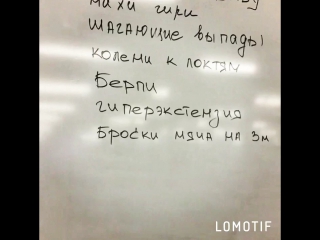 махи гири
шагающие выпады
колени к локтям
Берпи
гиперэкстензия
Броски мяча на 3м
LOMOTIF